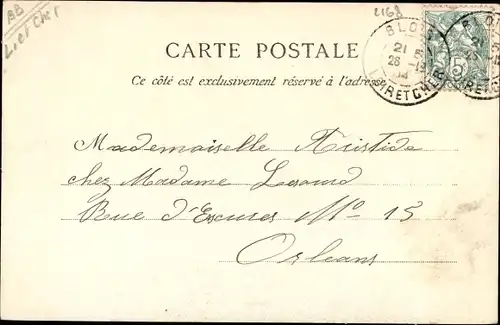 BB
Loir et Cher
2168
BLOIS
21
26 -12
04
LOIR ET CHER
5
CARTE POSTALE
Ce côté est exclusivement réservé à l'adresse
Mademoiselle Aristide
chez Madame Lesourd
Rue d'Escures No 15
Orleans